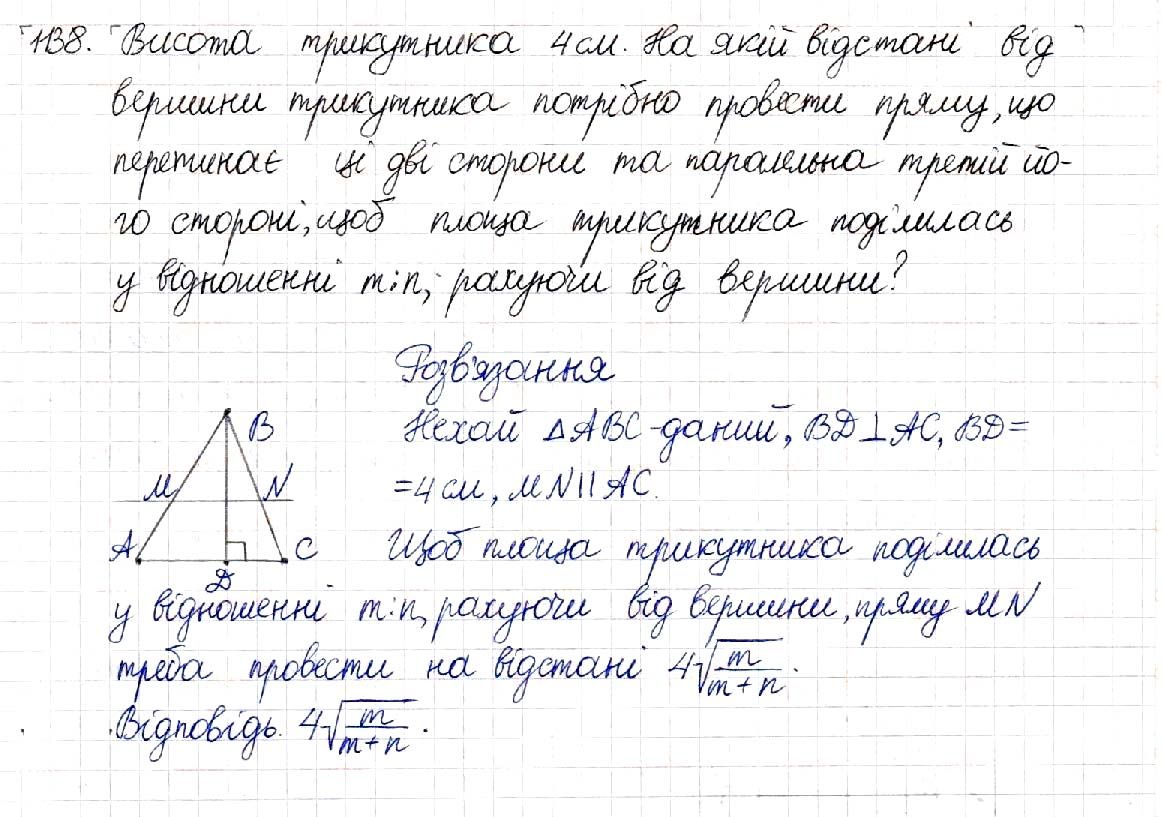 1138. Висота трикутника 4 см. На якій відстані від
вершини трикутника потрібно провести пряму, що
перетинає ці дві сторони та паралельна третій йо-
го стороні, щоб площа трикутника поділилась
у відношенні m:n, рахуючи від вершини?
Розв'язання
B
Нехай △ABC - даний, BD⊥AC, BD=
M N
=4 см, MN||AC.
A C
Щоб площа трикутника поділилась
D
у відношенні m:n, рахуючи від вершини, пряму MN
треба провести на відстані 4√(m/(m+n)).
Відповідь. 4√(m/(m+n)).